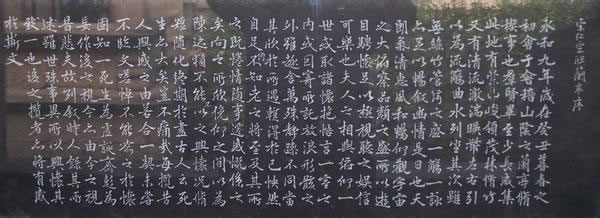 宋仁宗臨蘭亭序
永和九年歲在癸丑暮春之
初會于會稽山陰之蘭亭脩
禊事也羣賢畢至少長咸集
此地有崇山峻領茂林脩竹
又有清流激湍暎帶左右引
以為流觴曲水列坐其次雖
無絲竹管弦之盛一觴一詠
亦足以暢敘幽情是日也天
朗氣清惠風和暢仰觀宇宙
之大俯察品類之盛所以遊
目騁懷足以極視聽之娛信
可樂也夫人之相與俯仰一
世或取諸懷抱悟言一室之
內或因寄所託放浪形骸之
外雖趣舍萬殊靜躁不同當
其欣於所遇暫得於己怏然
自足不知老之將至及其所
之既惓情隨事遷感慨係之
矣向之所欣俛仰之間以為
陳迹猶不能不以之興懷況脩
短隨化終期於盡古人云死
生亦大矣豈不痛哉每攬昔
人興感之由若合一契未嘗
不臨文嗟悼不能喻之於懷
固知一死生為虛誕齊彭殤為
妄作後之視今亦由今之視
昔悲夫故列敘時人錄其所
述雖世殊事異所以興懷其
致一也後之攬者亦將有感
於斯文